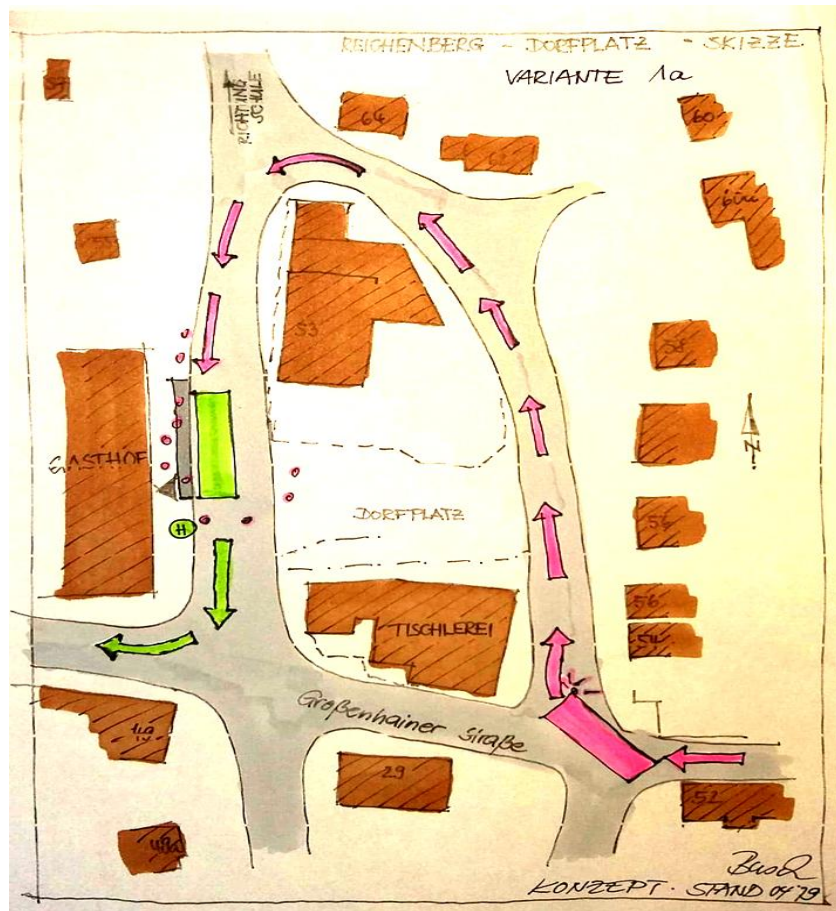 REICHENBERG - DORFPLATZ - SKIZZE
VARIANTE 1a
RICHTUNG
SCHULE
64
60
60a
53
58
GASTHOF
N
DORFPLATZ
H
56
TISCHLEREI
Großenhainer Straße
29
52
KONZEPT. STAND